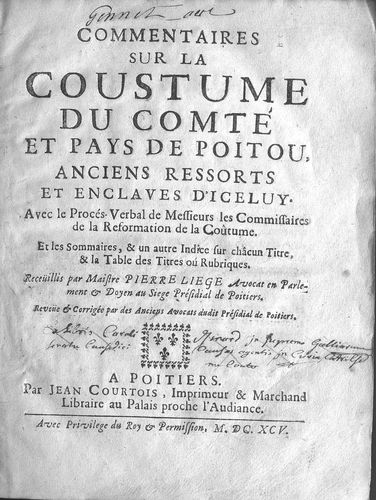 COMMENTAIRES
SUR LA
COUSTUME
DU COMTÉ
ET PAYS DE POITOU,
ANCIENS RESSORTS
ET ENCLAVES D'ICELUY.
Avec le Procés-Verbal de Messieurs les Commissaires
de la Reformation de la Coûtume.
Et les Sommaires, & un autre Indice sur châcun Titre,
& la Table des Titres où Rubriques.
Recüeillis par Maistre PIERRE LIEGE Avocat en Parle-
ment & Doyen au Siege Présidial de Poitiers.
Reveuë & Corrigée par des Anciens Avocats dudit Présidial de Poitiers.
A POITIERS.
Par JEAN COURTOIS, Imprimeur & Marchand
Libraire au Palais proche l'Audiance.
Avec Privilege du Roy & Permission, M. DC. XCV.